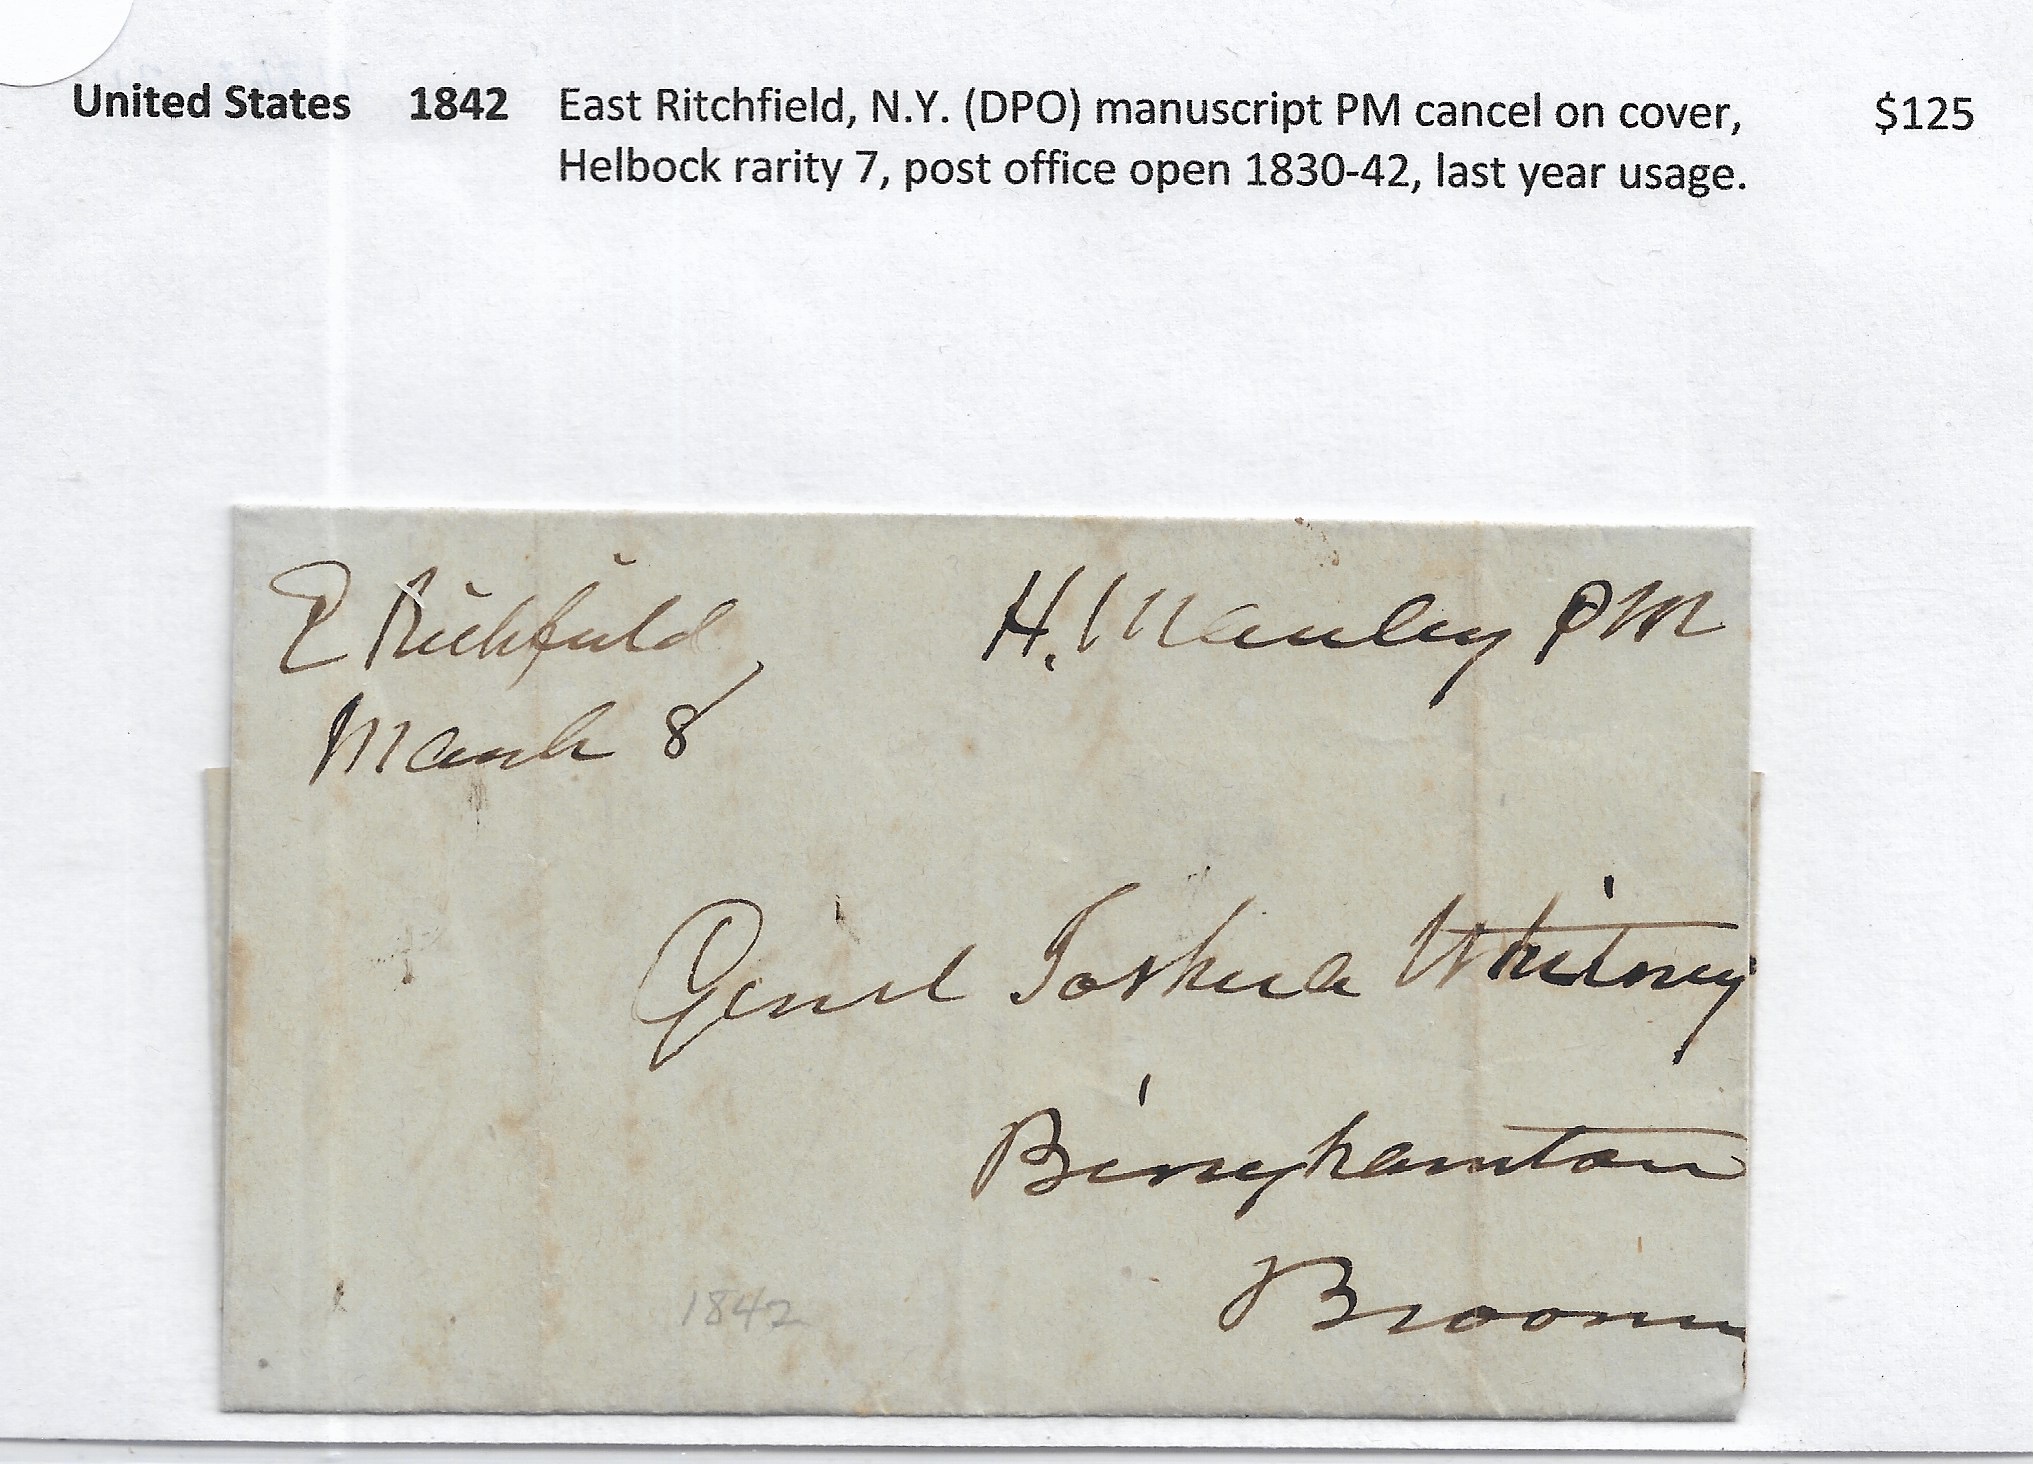 United States 1842 East Ritchfield, N.Y. (DPO) manuscript PM cancel on cover, $125
Helbock rarity 7, post office open 1830-42, last year usage.
E Richfield, H. Manley PM
March 8
Genl Joshua Whitney
Binghamton
Broome
1842